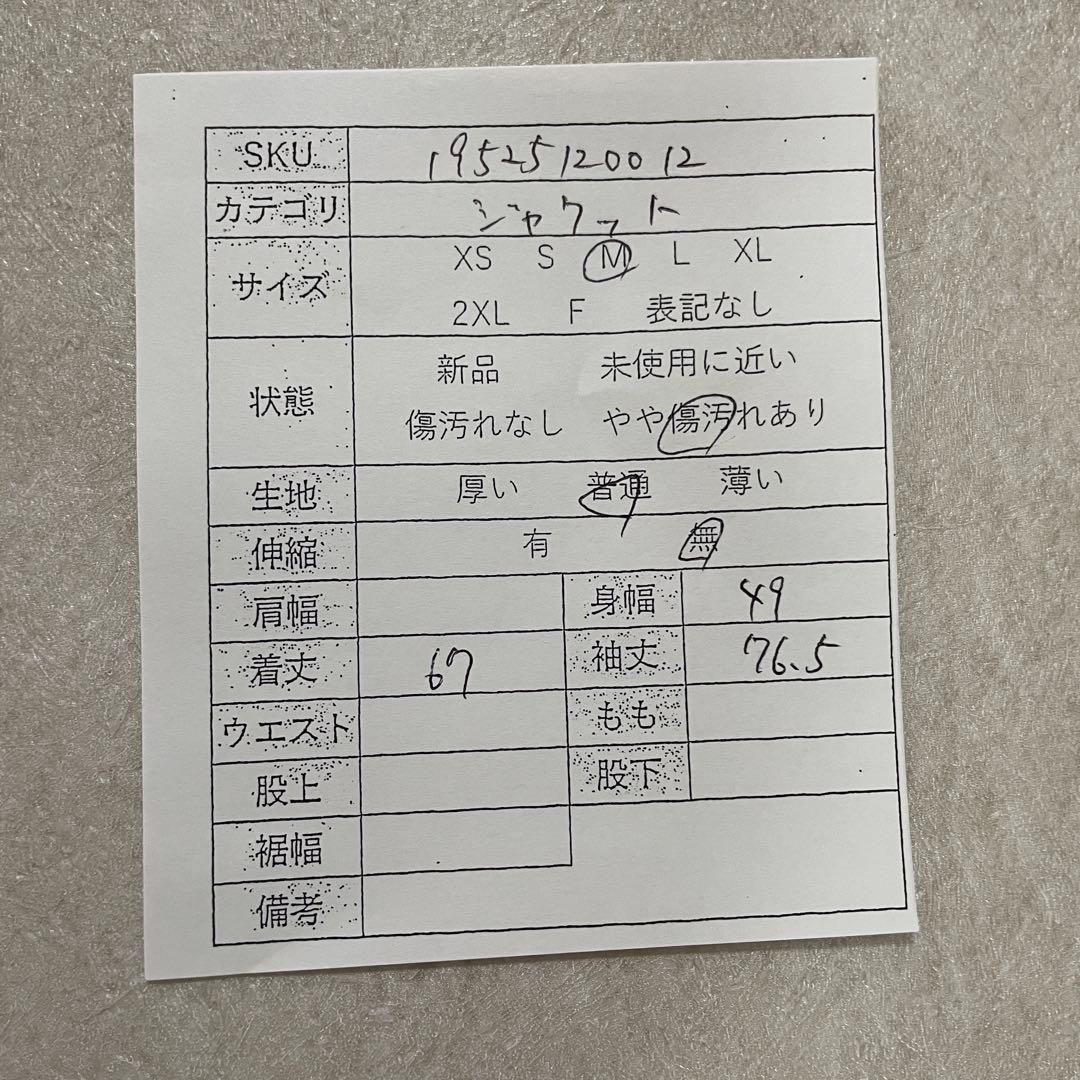 SKU 19525120012
カテゴリ ジャケット
サイズ XS S M L XL
2XL F 表記なし
状態 新品 未使用に近い
傷汚れなし やや傷汚れあり
生地 厚い 普通 薄い
伸縮 有 無
肩幅 身幅 49
着丈 67 袖丈 76.5
ウエスト もも
股上 股下
裾幅
備考